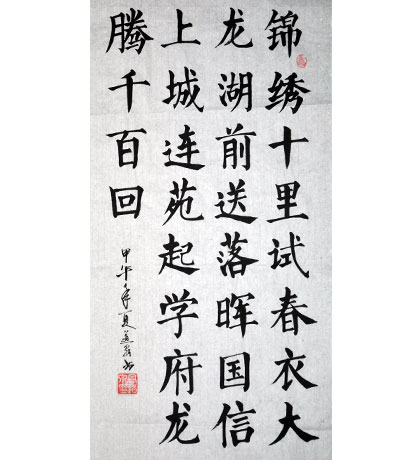 锦绣十里试春衣大
龙湖前送落晖国信
上城连苑起学府龙
腾千百回
甲午年夏